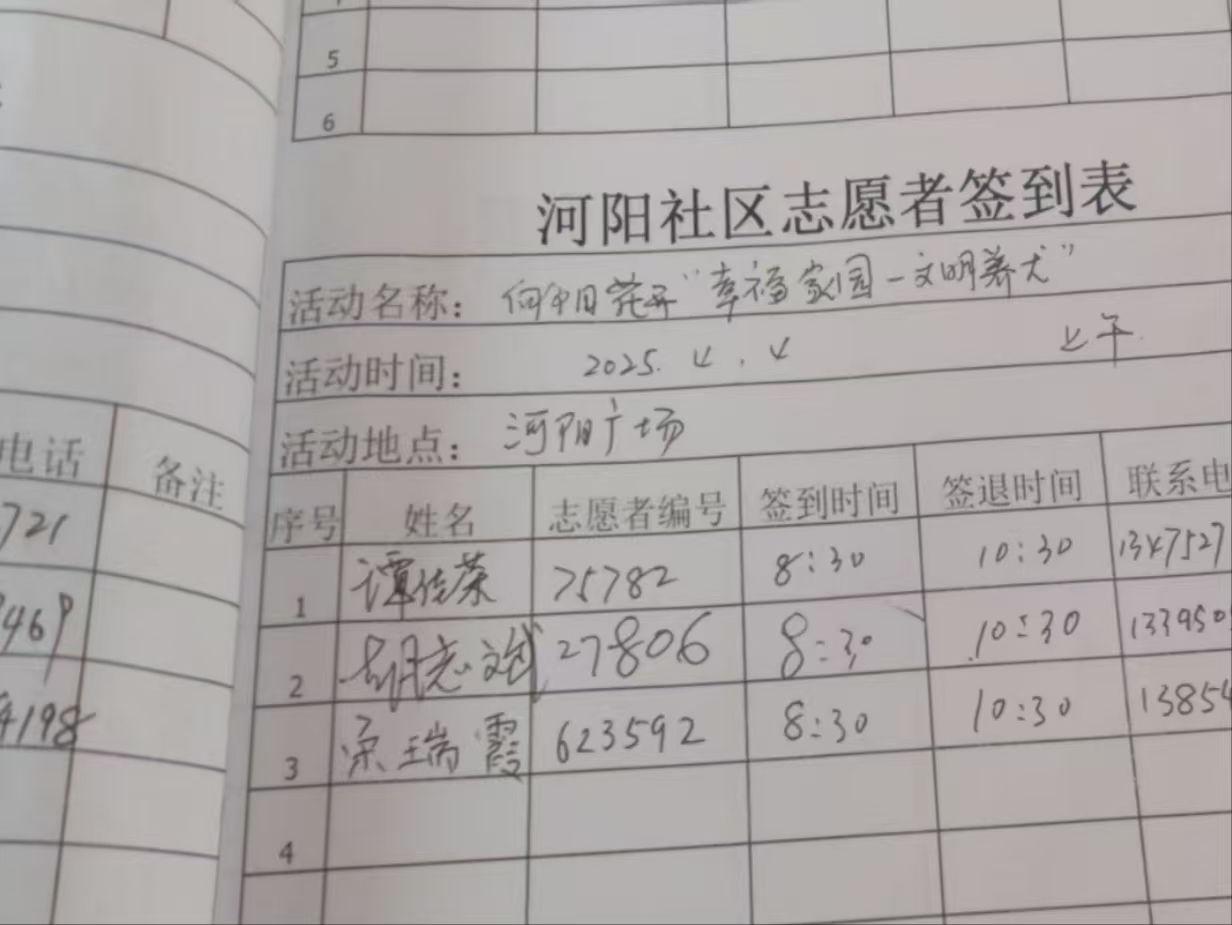 5
6
河阳社区志愿者签到表
活动名称: 向阳花开“幸福家园一文明养犬”
活动时间: 2025.4.4 上午
活动地点: 河阳广场
序号 姓名 志愿者编号 签到时间 签退时间 联系电
1 谭佳荣 75782 8:30 10:30 1347527
2 胡志斌 27806 8:30 10:30 133950
3 梁瑞霞 623592 8:30 10:30 1385
4
电话 备注
721
469
4198